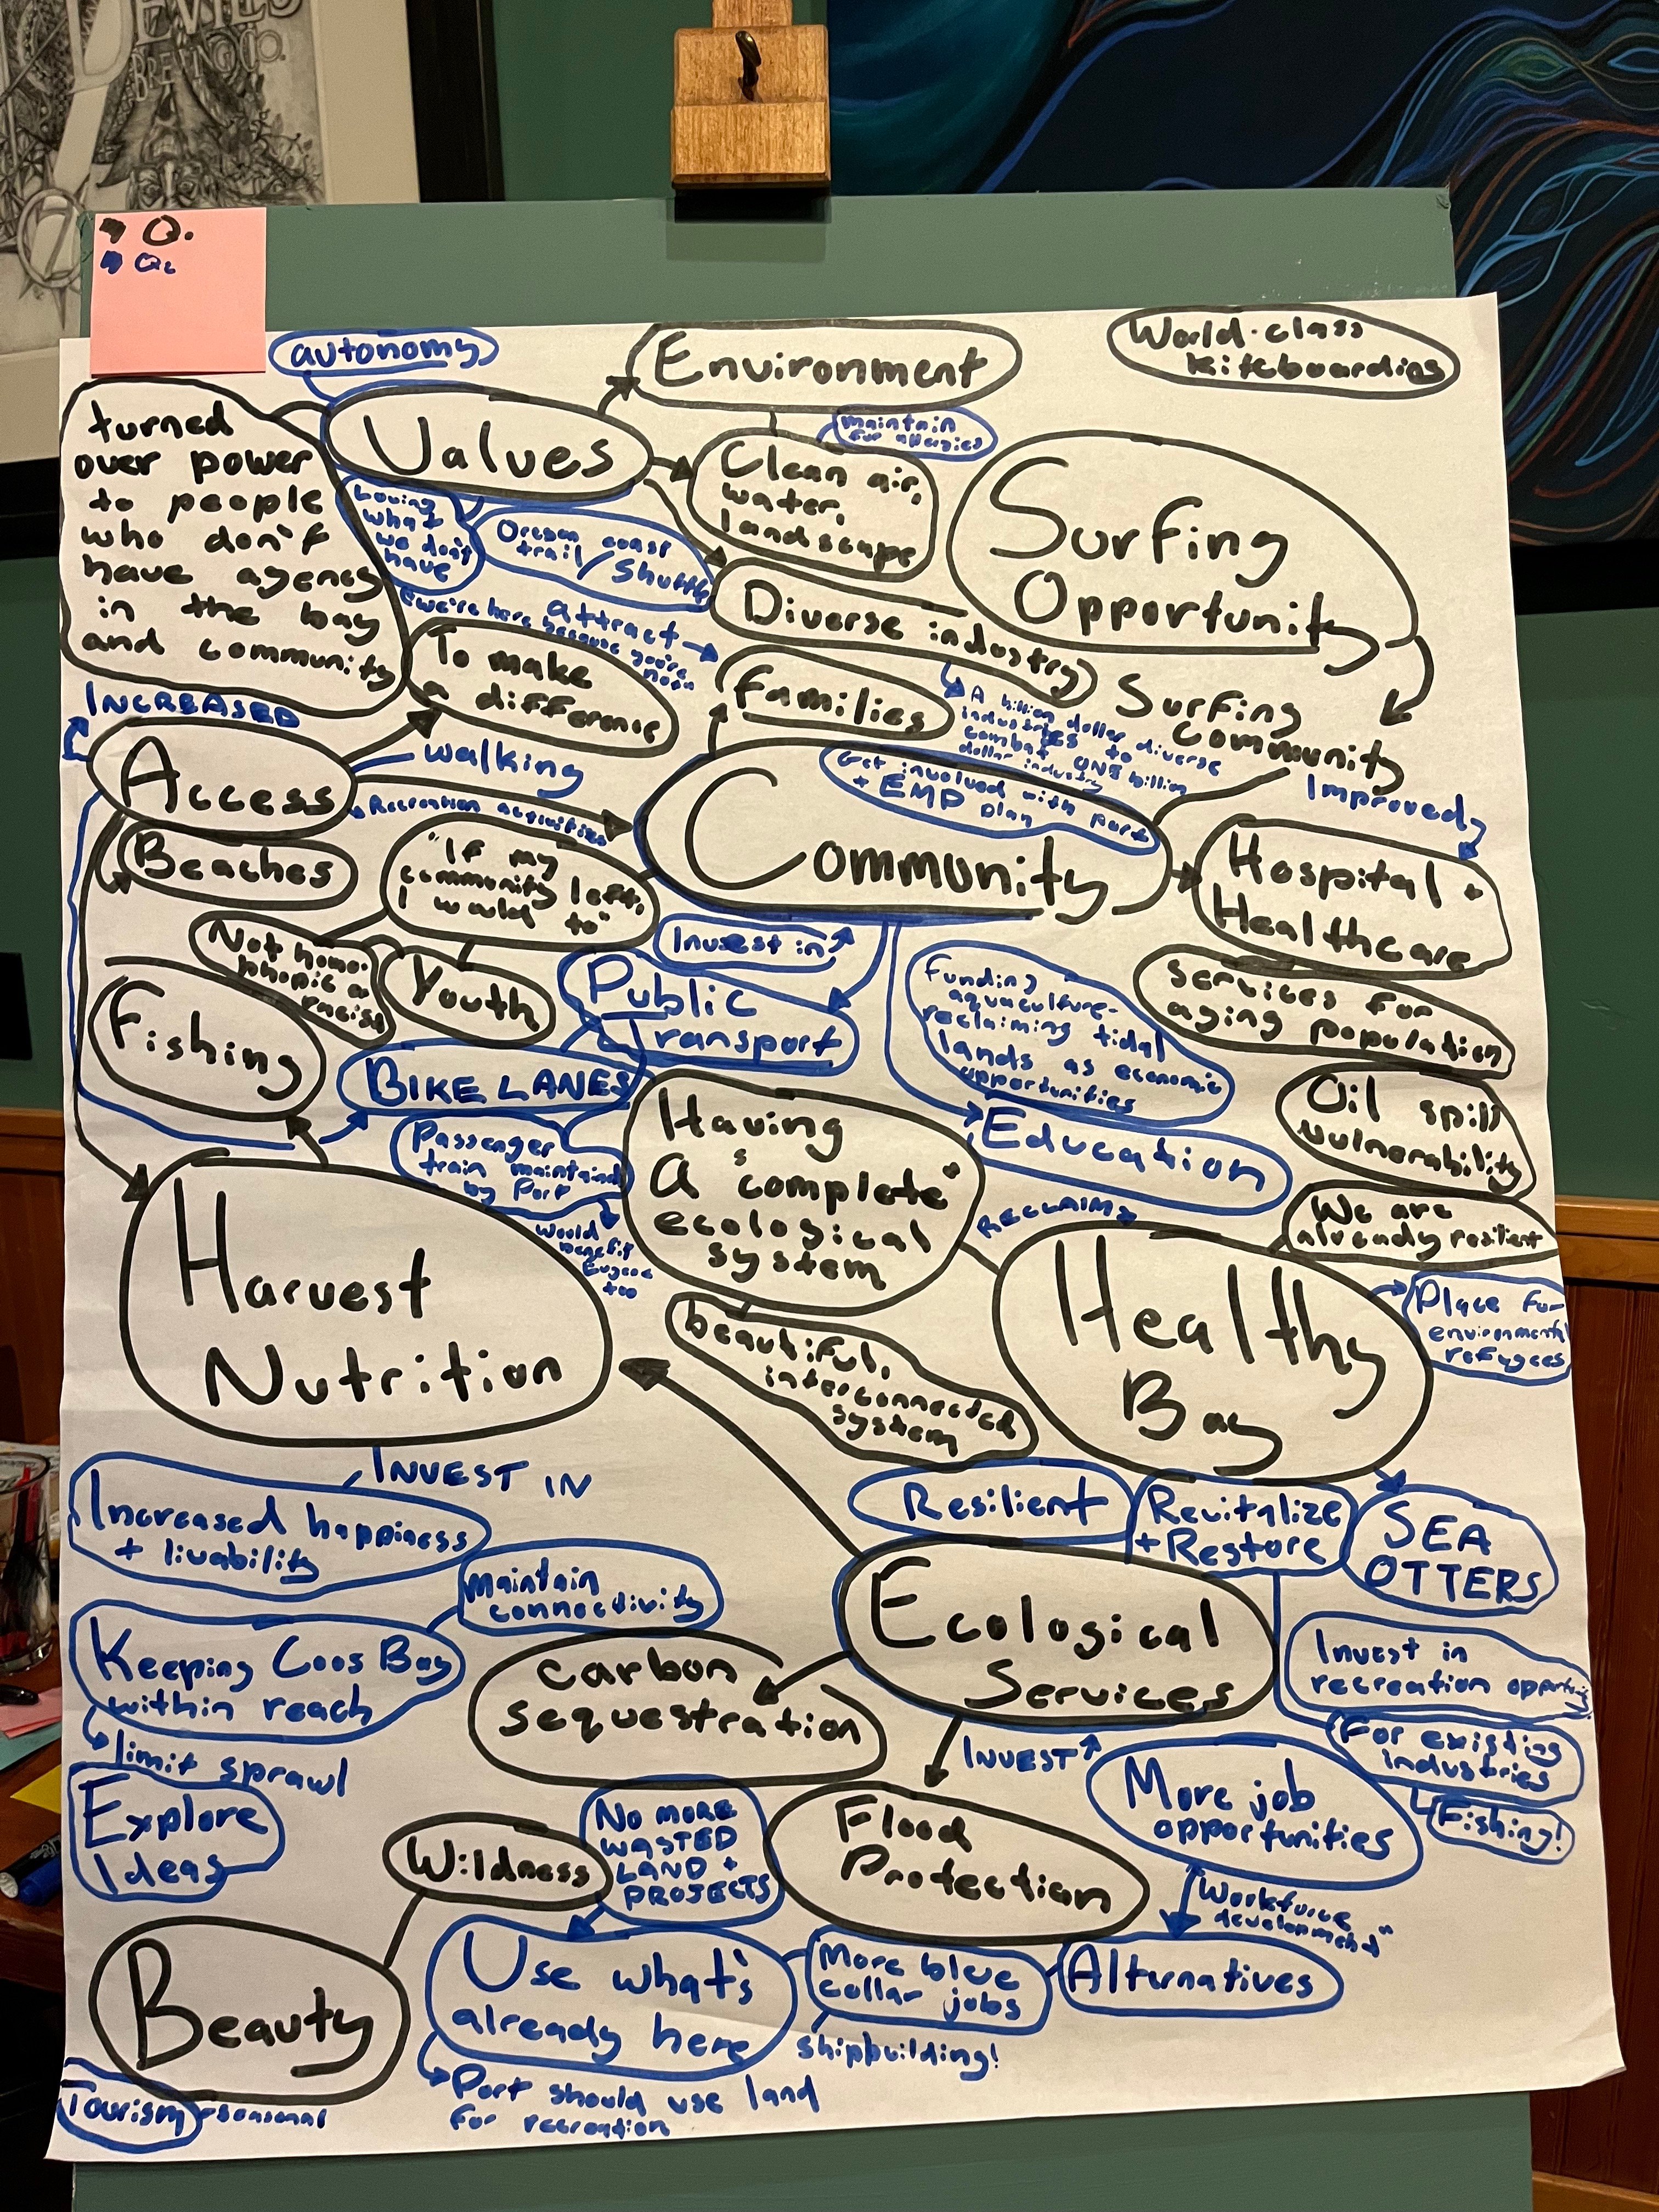 DEVILS
BREWING CO.
Q.
Q.
autonomy
Environment
World-class
kiteboarding
Values
maintain
for allergies
turned
over power
to people
who don't
have agency
in the bay
and community
Clean air,
water,
landscape
Loving
what
we don't
have
Oregon coast
trail / Shuttle
Surfing
Opportunity
"we're here because you're
not"
attract
Diverse industry
To make
a difference
families
A billion dollar diverse
industries to
combat ONE billion
dollar industry
Surfing
Community
INCREASED
Access
walking
Recreation activities
Get involved with port
+ EMP plan
Community
Improved
Hospital +
Healthcare
Beaches
"If my
community left,
I would
to"
Not homo-
phobic or
racist
Youth
Invest in
Public
transport
Funding
aquaculture-
reclaiming tidal
lands as economic
opportunities
services for
aging population
Fishing
BIKE LANES
Oil spill
vulnerability
Passenger
train maintained
by Port
Having
a "complete"
ecological
system
Education
would
benefit
Eugene
too
RECLAIM
We are
already resilient
Harvest
Nutrition
Healthy
Bay
Place for
environmental
refugees
beautiful,
interconnected
system
INVEST IN
Increased happiness
+ livability
Resilient
Revitalize
+ Restore
SEA
OTTERS
Maintain
connectivity
Ecological
Services
Keeping Coos Bay
within reach
carbon
sequestration
Invest in
recreation opportunities
limit sprawl
INVEST
For existing
industries
Fishing!
Explore
Ideas
More job
opportunities
Wildness
No more
WASTED
LAND +
PROJECTS
Flood
Protection
Workforce
development"
Beauty
Use what's
already here
More blue
collar jobs
Alternatives
shipbuilding!
Port should use land
for recreation
Tourism
seasonal